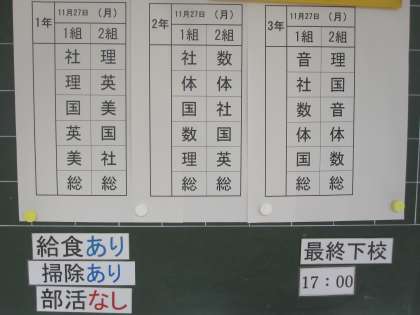 1年 11月27日 （月）
1組 2組
社 理
理 英
国 美
英 国
美 社
総 総
2年 11月27日 （月）
1組 2組
社 数
体 体
国 社
数 国
理 英
総 総
3年 11月27日 （月）
1組 2組
音 理
社 国
数 音
体 体
国 数
総 総
給食あり
掃除あり
部活なし
最終下校
17：00